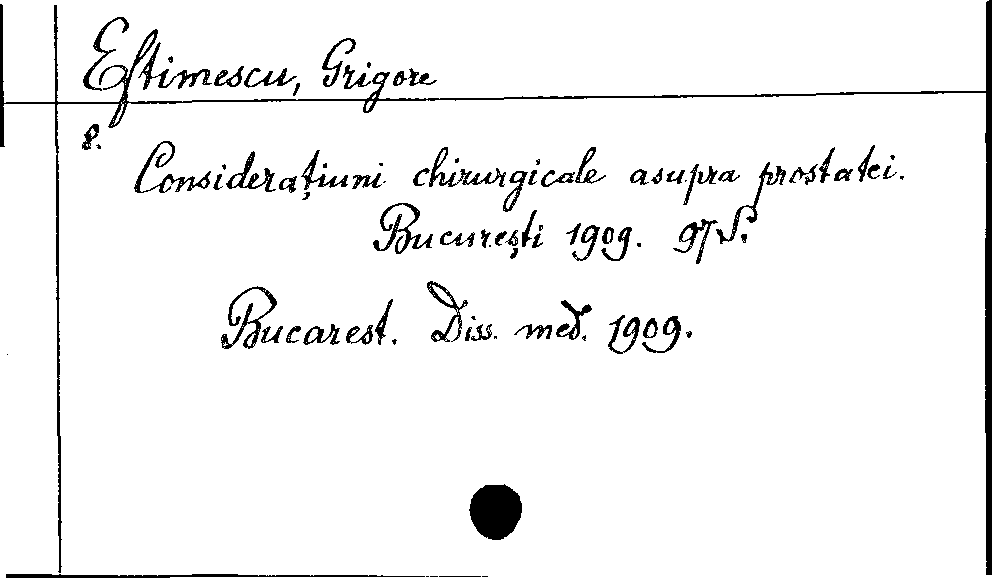 Eftimescu, Grigore
8.
Considerațiuni chirurgicale asupra prostatei.
București 1909. 97 S.
Bucarest. Diss. med. 1909.